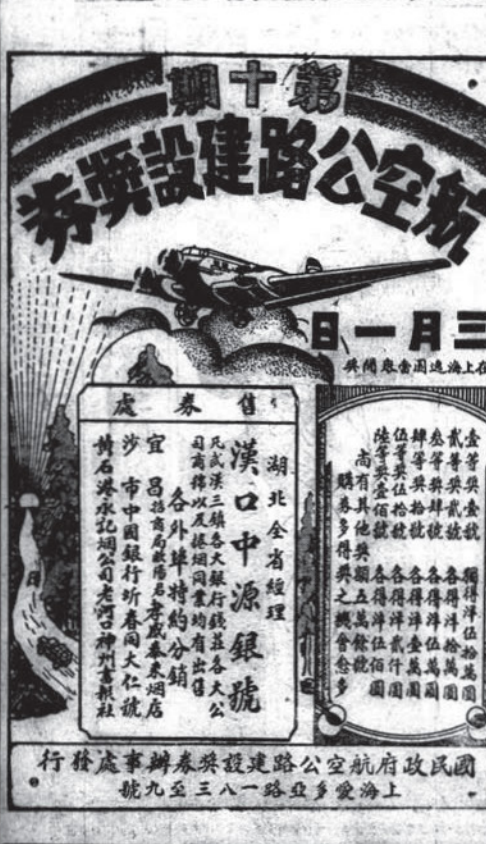 第十期
航空公路建設獎券
三月一日
在上海逸園當眾開獎
壹等獎壹號 獨得洋伍拾萬圓
貳等獎貳號 各得洋拾萬圓
叁等獎肆號 各得洋伍萬圓
肆等獎拾號 各得洋壹萬圓
伍等獎伍拾號 各得洋貳仟圓
陸等獎壹佰號 各得洋伍佰圓
尚有其他獎額五萬餘號
購券多得獎之機會愈多
售券處
湖北全省經理
漢口中源銀號
凡武漢三鎮各大銀行錢莊各大公
司商號以及捲烟同業均有出售
各外埠特約分銷
宜昌招商局歐陽君孝感泰來烟店
沙市中國銀行圻春同大仁號
黃石港承記烟公司老河口神州書報社
國民政府航空公路建設獎券辦事處發行
上海愛多亞路一八三至九號